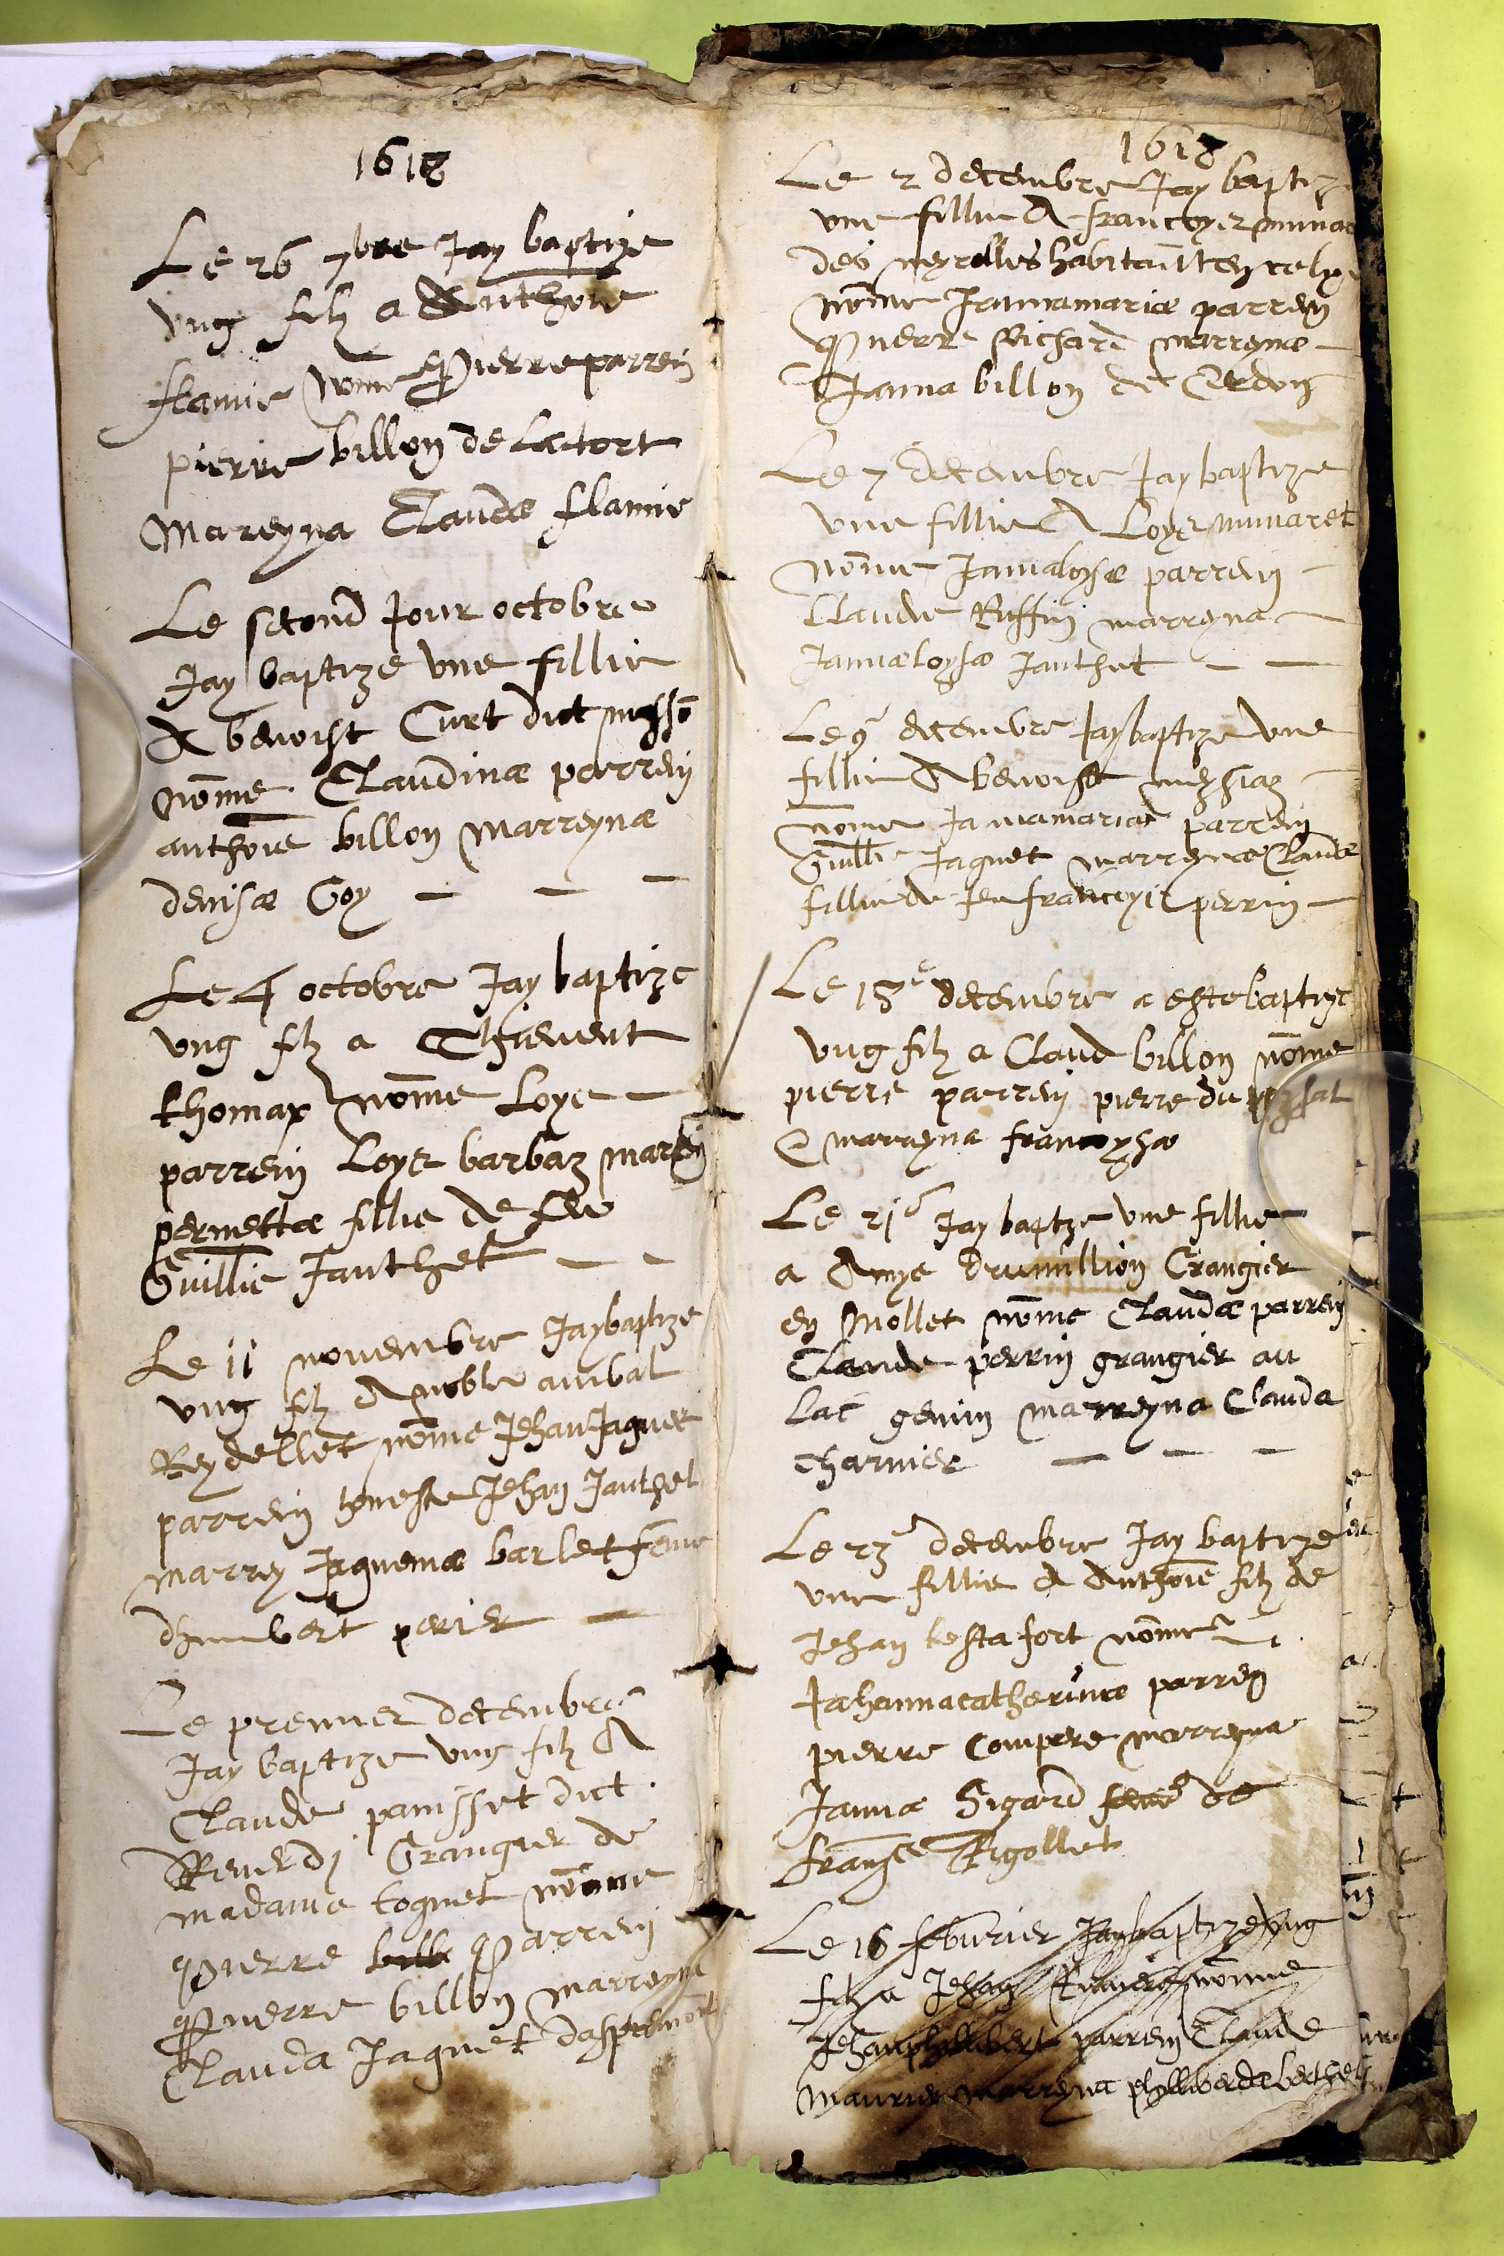 1618
Le 26 7bre Jay baptize
vng filz a Anthoie
flamie nome Pierre parrein
pierre billon de lactort
Mareyna Claudæ flamie
Le second Jour octobre
Jay baptize vne fillie
A benoist Curt dict
nome Claudinæ parrein
anthoie billon Marreynæ
denisæ Goy
Le 4 octobre Jay baptize
vng filz a Thievent
thomax nome Loys
parrein Loys barbaz
pernettæ fillie de feu
Guillie Janthet
Le 11 novembre Jay baptize
vng filz A noble anibal
Reydellet nome Jehan Jaques
parrein honeste Jehan Janthet
marrey Jaquemæ barlet feme
dhumbert perier
Le premier decembre
Jay baptize vng filz A
Claude panisset dict
Reverdj Grangier de
madame toquet nome
Pierre bill Parrein
Pierre billon marreyna
Clauda Jaquet daspremont
1618
Le 2 decembre Jay baptize
vne fillie A francoys
des neyrolles habitant en
nome Jannamariæ parrein
Pierre Richard marreynæ
Janna billon de Cerdon
Le 7 decembre Jay baptize
vne fillie A Loys munaret
nome Janaloysæ parrein
Claude Ruffin marreyna
Jannæloysæ Janthet
Le 9 decembre Jay baptize vne
fillie A benoist
nome Janamariæ parrein
Guillie Jaquet marreyna Claudæ
fillie de feu francoys perrin
Le 18e decembre a este baptize
vng filz a Claud billon nome
pierre parrein pierre du
& marreyna francoysæ
Le 21e Jay baptize vne fillie
a Amye Grangier
en Mollet nome Claudæ parrein
Claude perrin grangier au
Lac genin marreyna Clauda
Charnier
Le 23 decembre Jay baptize
vne fillie A Anthoie filz de
Jehan testafort nome
Jahannacatherinæ parrein
pierre Compere marreyna
Jannæ Sigard feme de
Rigollet
Le 16 feburier Jay baptize vng
filz a Jehan nome
Jehanphillibert parrein Claude
Maurier marreyna phylliberdæ berthet